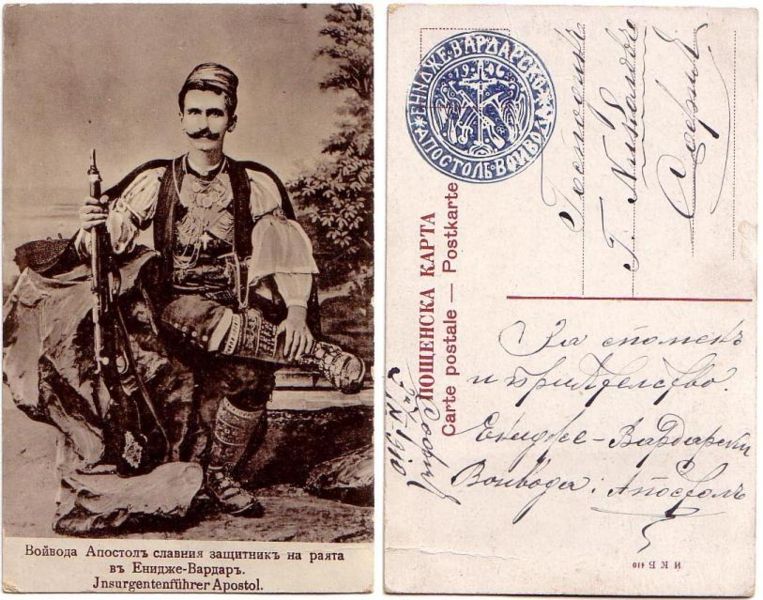 Войвода Апостолъ славния защитникъ на раята
въ Енидже-Вардаръ.
Jnsurgentenführer Apostol.
ЕНИДЖЕ·ВАРДАРСКИ
1906
АПОСТОЛЪ·ВОЙВОДА
Господинъ
Г.
София
ПОЩЕНСКА КАРТА
Carte postale — Postkarte
За споменъ
и приятелство.
Енидже-Вардарски
Войвода: Апостолъ
София
1910
И К Б 410